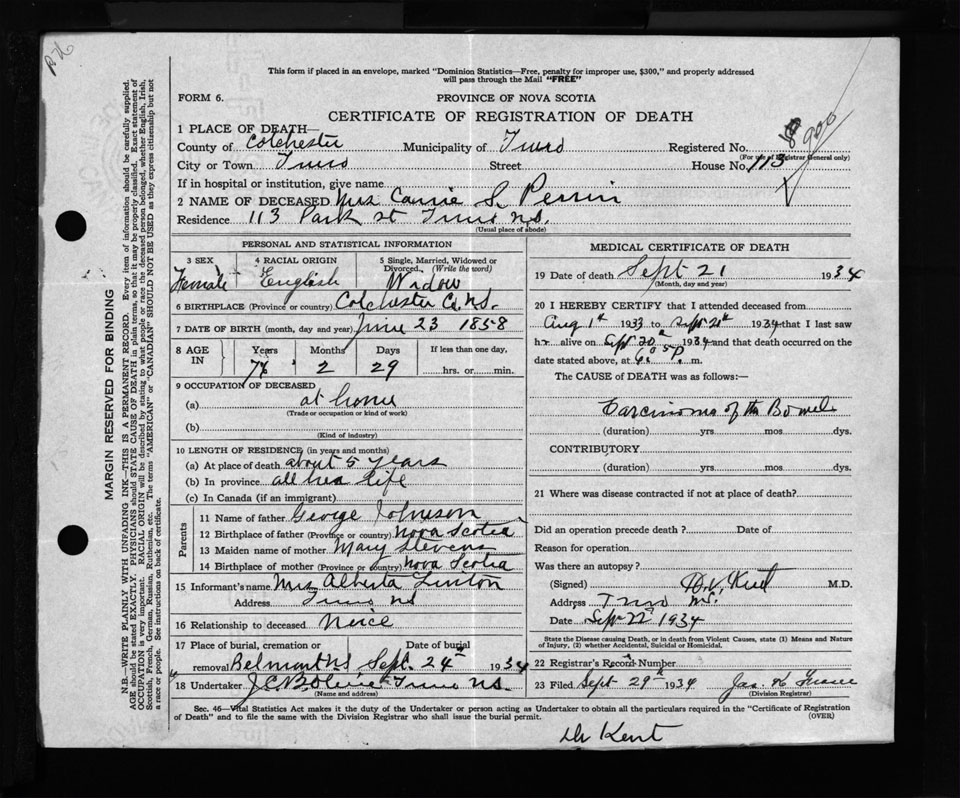 This form if placed in an envelope, marked "Dominion Statistics—Free, penalty for improper use, $300," and properly addressed
will pass through the Mail "FREE"
FORM 6.
PROVINCE OF NOVA SCOTIA
CERTIFICATE OF REGISTRATION OF DEATH
1 PLACE OF DEATH—
County of Colchester Municipality of Truro Registered No.
(For use of Registrar General only)
City or Town Truro Street House No. 113
If in hospital or institution, give name
2 NAME OF DECEASED Mrs Carrie S. Perrin
Residence 113 Park st Truro N.S.
(Usual place of abode)
PERSONAL AND STATISTICAL INFORMATION
3 SEX 4 RACIAL ORIGIN 5 Single, Married, Widowed or Divorced. (Write the word)
Female English Widow
6 BIRTHPLACE (Province or country) Colchester Co. N.S.
7 DATE OF BIRTH (month, day and year) June 23 1858
8 AGE IN Years Months Days If less than one day,
2 29 hrs. or min.
9 OCCUPATION OF DECEASED
(a) at home
(Trade or occupation or kind of work)
(b)
(Kind of industry)
10 LENGTH OF RESIDENCE (in years and months)
(a) At place of death about 5 years
(b) In province all her life
(c) In Canada (if an immigrant)
Parents
11 Name of father George Johnson
12 Birthplace of father (Province or country) Nova Scotia
13 Maiden name of mother Mary Stevens
14 Birthplace of mother (Province or country) Nova Scotia
15 Informant's name Mrs Alberta Linton
Address Truro NS
16 Relationship to deceased Neice
17 Place of burial, cremation or Date of burial
removal Belmont NS Sept. 24th 1934
18 Undertaker Truro N.S.
(Name and address)
MEDICAL CERTIFICATE OF DEATH
19 Date of death Sept 21 1934
(Month, day and year)
20 I HEREBY CERTIFY that I attended deceased from
Aug 1st 1933 to Sept 20th 1934 that I last saw
h alive on Sept 20th 1934 and that death occurred on the
date stated above, at m.
The CAUSE of DEATH was as follows:—
Carcinoma of the Bowel
(duration) yrs mos dys.
CONTRIBUTORY
(duration) yrs mos dys.
21 Where was disease contracted if not at place of death?
Did an operation precede death? Date of
Reason for operation
Was there an autopsy?
(Signed) Kent M.D.
Address Truro NS.
Date Sept 22nd 1934
State the Disease causing Death, or in death from Violent Causes, state (1) Means and Nature
of Injury, (2) whether Accidental, Suicidal or Homicidal.
22 Registrar's Record Number
23 Filed Sept 29th 1934
(Division Registrar)
Sec. 46—Vital Statistics Act makes it the duty of the Undertaker or person acting as Undertaker to obtain all the particulars required in the "Certificate of Registration
of Death" and to file the same with the Division Registrar who shall issue the burial permit.
(OVER)
Dr Kent
MARGIN RESERVED FOR BINDING
N.B.—WRITE PLAINLY WITH UNFADING INK—THIS IS A PERMANENT RECORD. Every item of information should be carefully supplied.
AGE should be stated EXACTLY. PHYSICIANS should STATE CAUSE OF DEATH in plain terms, so that it may be properly classified. Exact statement of
OCCUPATION is very important. RACIAL ORIGIN will be described by stating to what people or race the deceased person belonged, whether English, Irish,
Scottish, French, German, Russian, Ruthenian, etc. The terms "AMERICAN" or "CANADIAN" SHOULD NOT BE USED as they express citizenship but not
a race or people. See instructions on back of certificate.